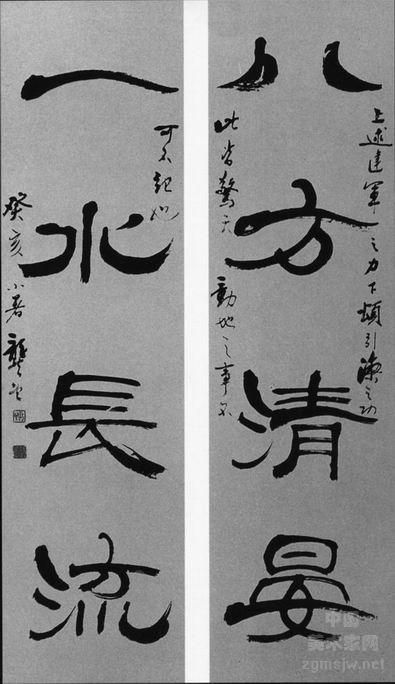 八方清晏
上述建軍之力下頌引灤之功
此皆驚天動地之事不
一水長流
可不記也
癸亥小暑龔望
中国
美术家网
zgmsjw.net